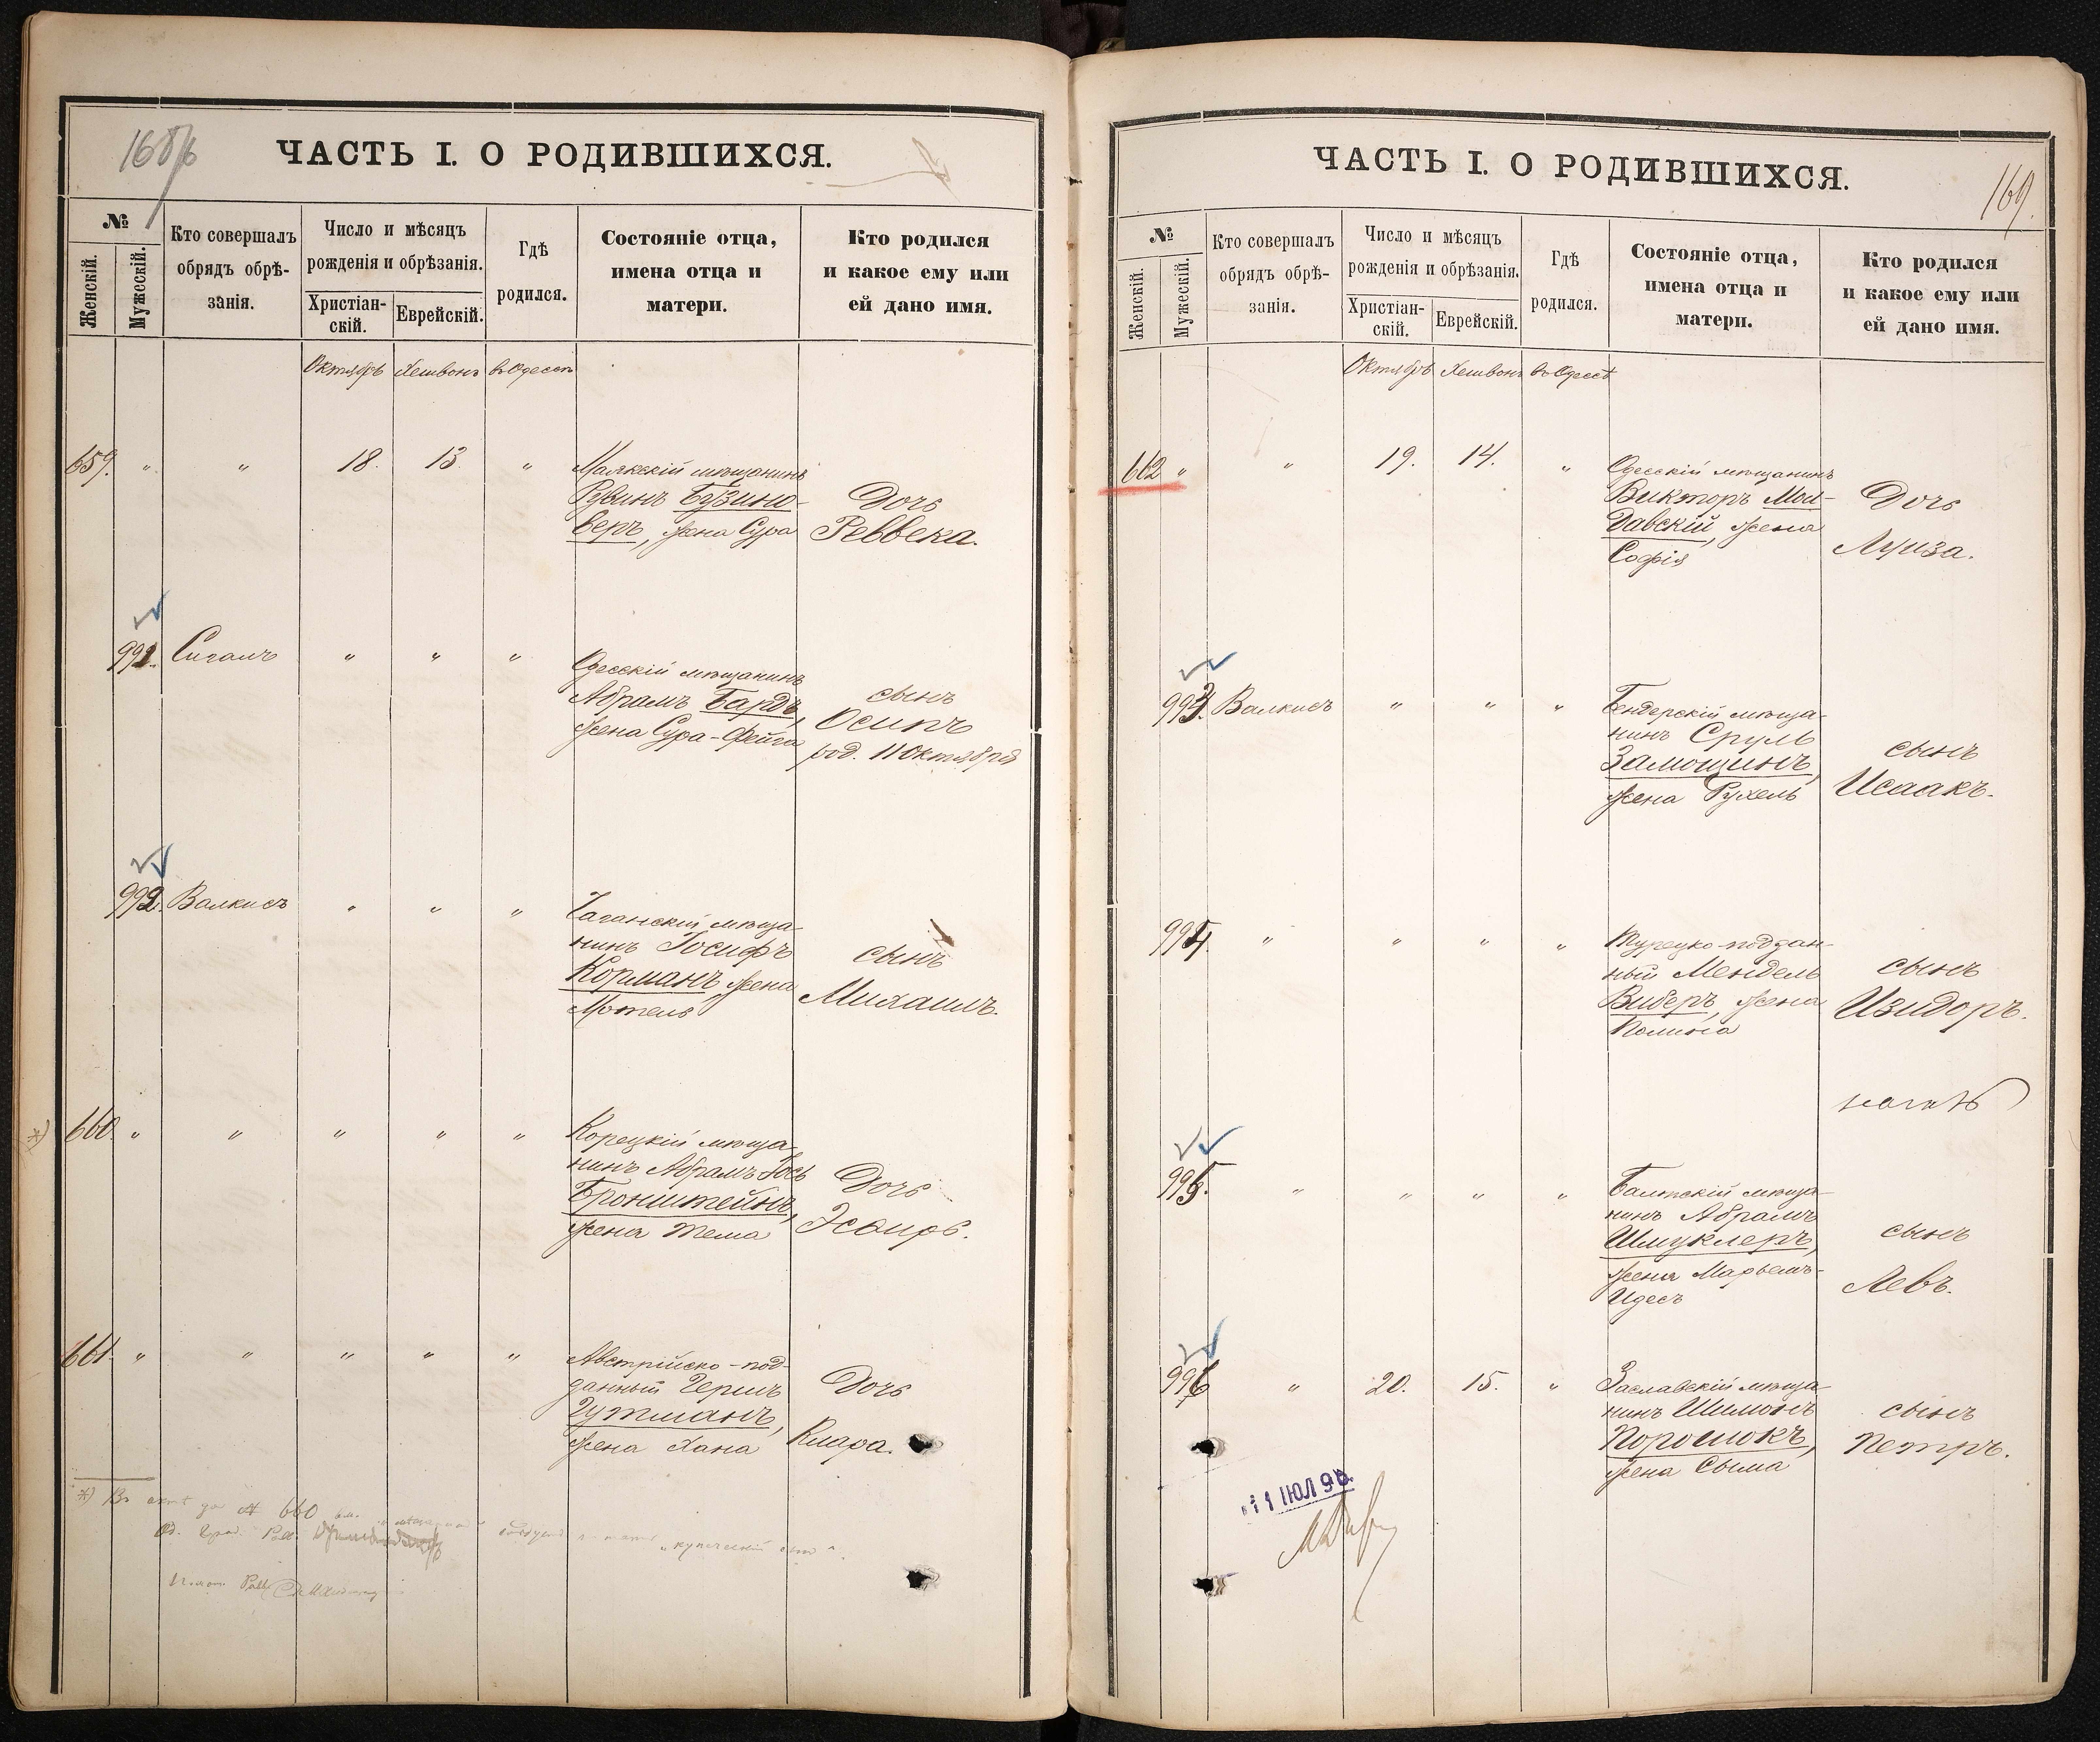 ЧАСТЬ I. О РОДИВШИХСЯ.
№
Женскій.
Мужескій.
Кто совершалъ
обрядъ обрѣ-
занія.
Число и мѣсяцъ
рожденія и обрѣзанія.
Христіан-
скій.
Еврейскій.
Гдѣ
родился.
Состояніе отца,
имена отца и
матери.
Кто родился
и какое ему или
ей дано имя.
Октябрь Хешвонъ въ Одессѣ
659. " " 18. 13. "
Маякскій мѣщанинъ
Рувинъ Бузино-
веръ, жена Сура
Дочь
Реввека.
991. Сигалъ " " "
Одесскій мѣщанинъ
Абрамъ Бардъ,
жена Сура-Фейга
сынъ
Осипъ
род. 11 октября
992. Валкисъ " " "
Чаганскій мѣща-
нинъ Іосифъ
Корманъ жена
Мотель
сынъ
Михаилъ.
*) 660. " " " " "
Корецкій мѣща-
нинъ Абрамъ Іось
Бронштейнъ,
жена Тема
Дочь
Эсѳирь.
661. " " " " "
Австрійско-под-
данный Гершъ
Гутманъ,
жена Хана
Дочь
Клара.
*) 660
ЧАСТЬ I. О РОДИВШИХСЯ.
169.
№
Женскій.
Мужескій.
Кто совершалъ
обрядъ обрѣ-
занія.
Число и мѣсяцъ
рожденія и обрѣзанія.
Христіан-
скій.
Еврейскій.
Гдѣ
родился.
Состояніе отца,
имена отца и
матери.
Кто родился
и какое ему или
ей дано имя.
Октябрь Хешвонъ въ Одессѣ
662 " " 19. 14. "
Одесскій мѣщанинъ
Викторъ Мол-
давскій, жена
Софія
Дочь
Луиза.
993. Валкисъ " " "
Бендерскій мѣща-
нинъ Сруль
Замощинъ,
жена Рухель
сынъ
Исаакъ.
994. " " " "
Турецко-поддан-
ный Мендель
Виберъ, жена
Полина
сынъ
Изидоръ.
995. " " " "
Балтскій мѣща-
нинъ Абрамъ
Шмуклеръ,
жена Марьемъ-
Идесъ
сынъ
Левъ.
996 " 20. 15. "
Заславскій мѣща-
нинъ Шимонъ
Порошокъ,
жена Сыма
сынъ
Петръ.
ІЮЛ 96.